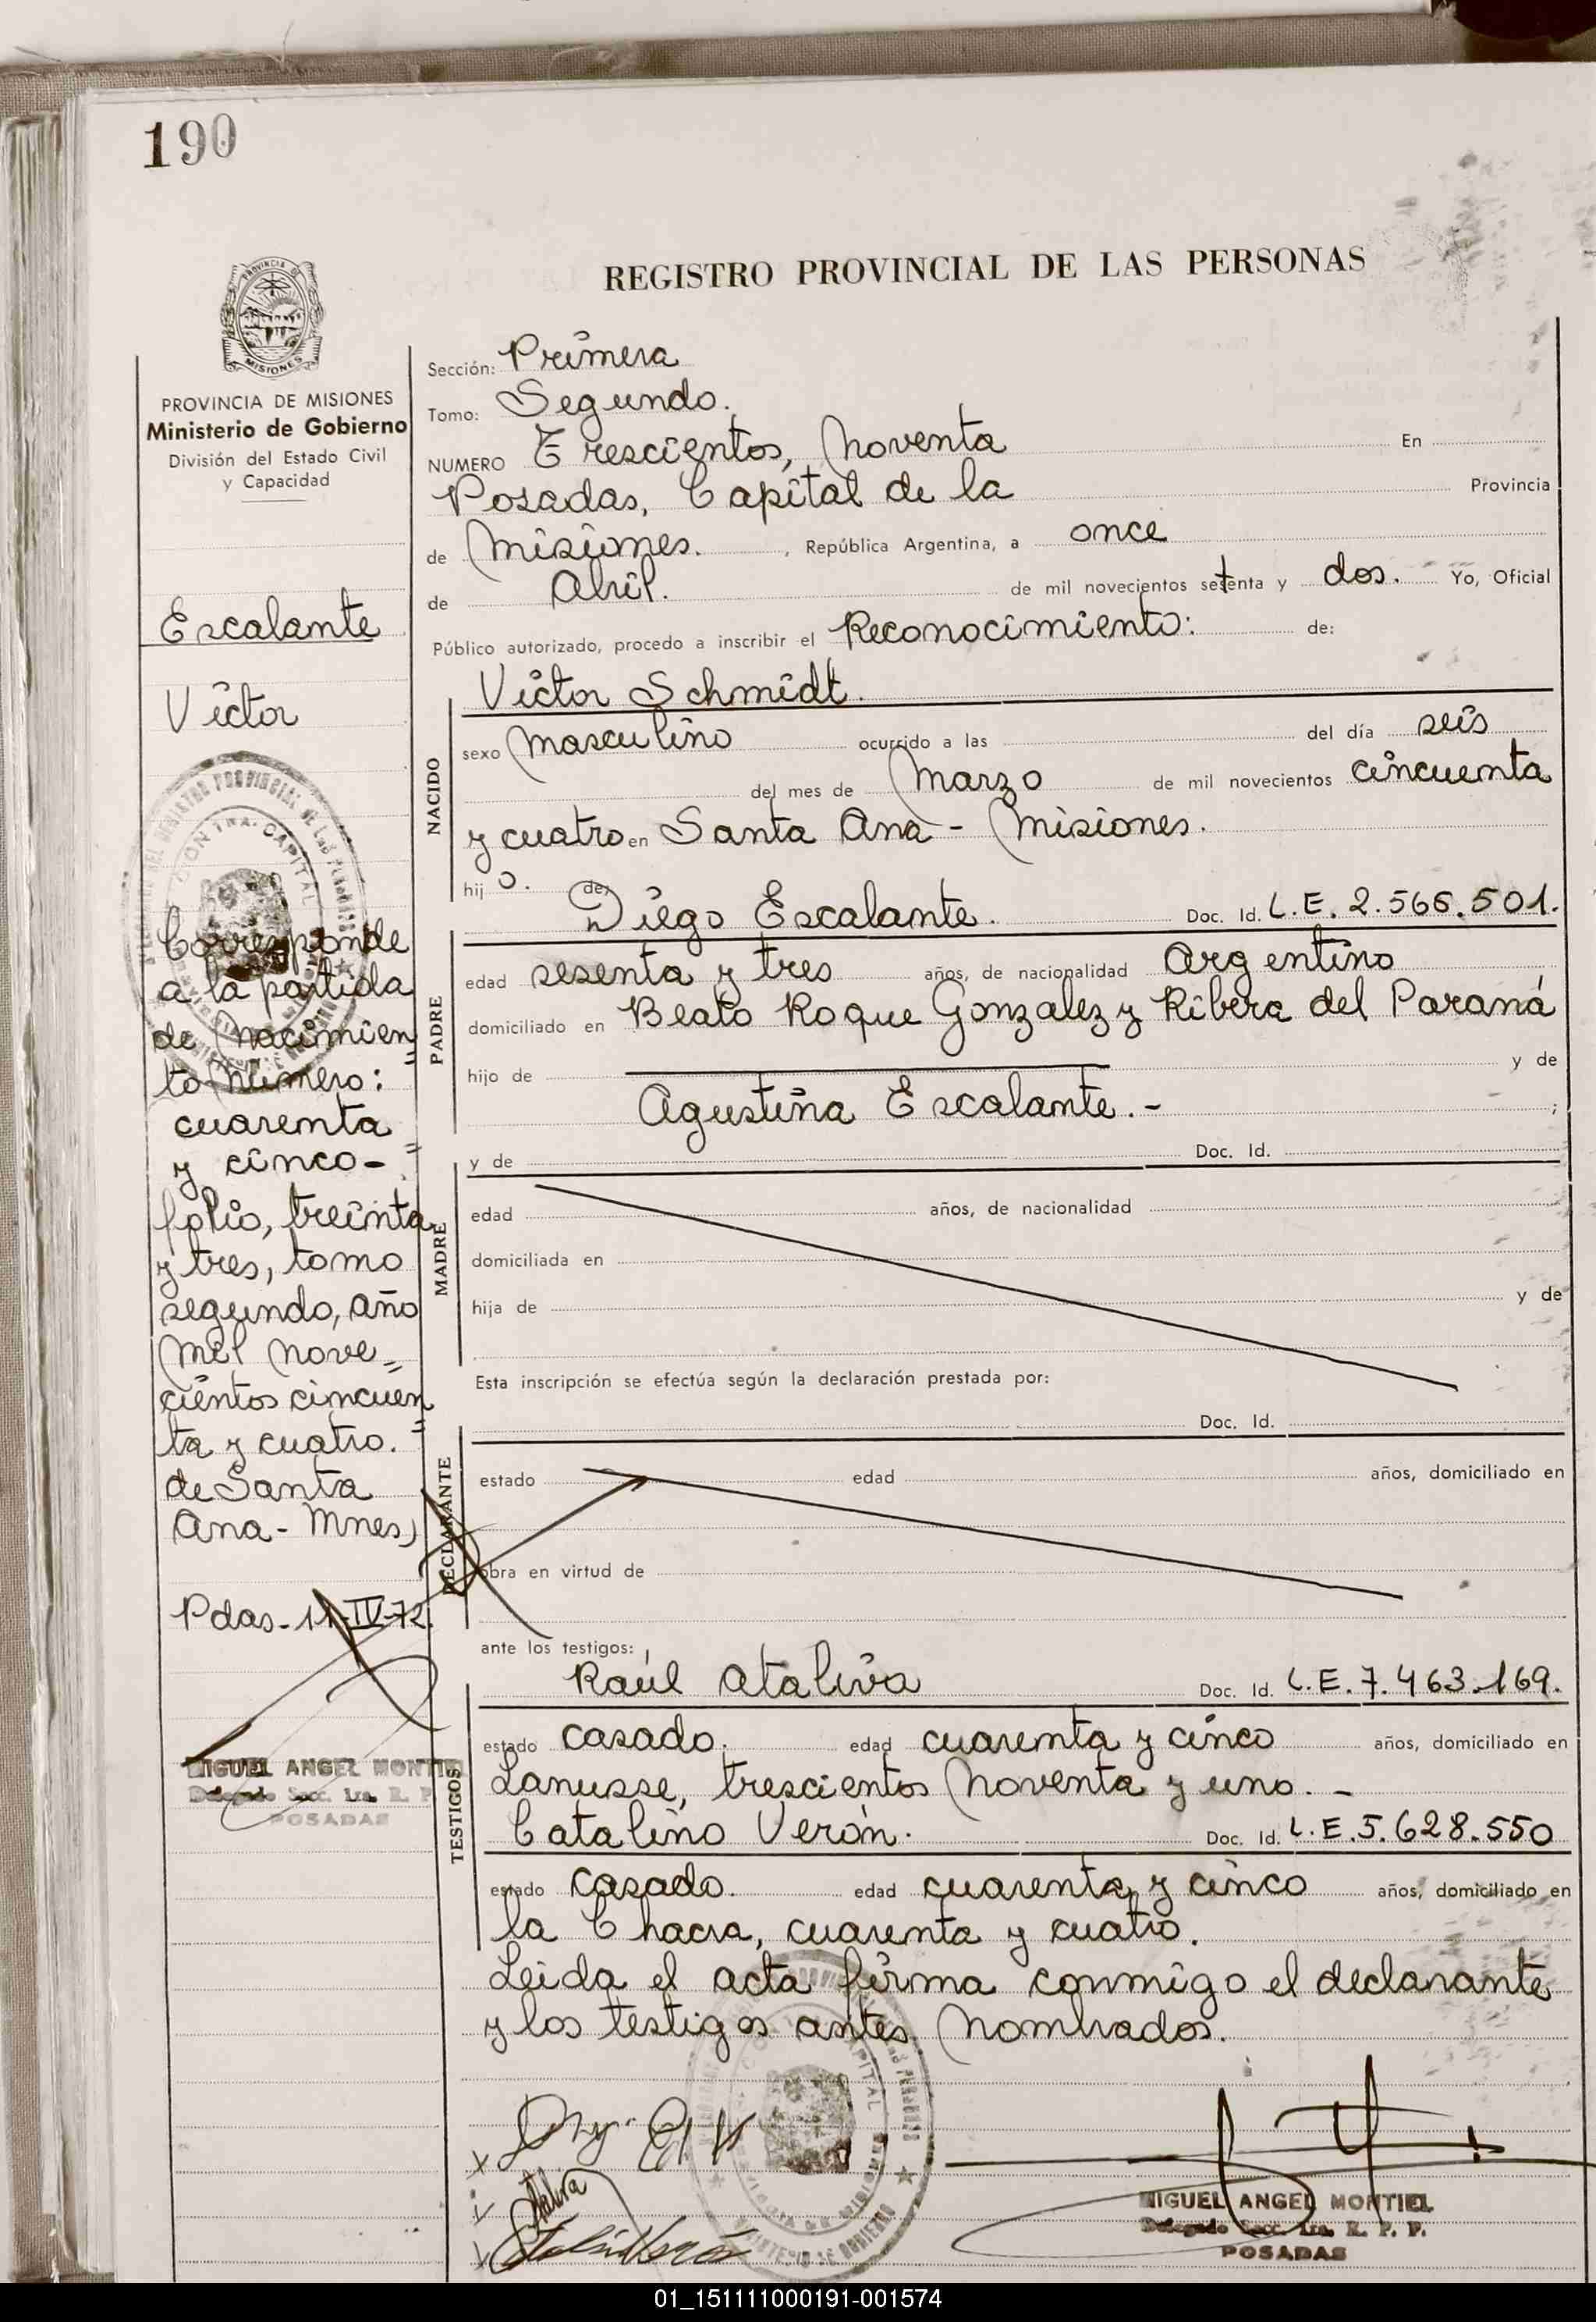 190
REGISTRO PROVINCIAL DE LAS PERSONAS
PROVINCIA DE MISIONES
Ministerio de Gobierno
División del Estado Civil
y Capacidad
Escalante
Victor
Corresponde
a la partida
de Nacimien
to número:
cuarenta
y cinco-
folio, treinta
y tres, tomo
segundo, año
mil nove=
cientos cincuen
ta y cuatro.=
de Santa
Ana- Mnes)
Pdas-11-IV-72.
MIGUEL ANGEL MONTIEL
Delegado Secc. 1ra. R. P.
POSADAS
Sección: Primera
Tomo: Segundo.
NUMERO Trescientos, Noventa En
Posadas, Capital de la Provincia
de Misiones. , República Argentina, a once
de Abril. de mil novecientos setenta y dos. Yo, Oficial
Público autorizado, procedo a inscribir el Reconocimiento: de:
NACIDO
Victor Schmidt.
sexo Masculino ocurrido a las del día seis
del mes de Marzo de mil novecientos cincuenta
y cuatro en Santa Ana - Misiones.
hijo. de
PADRE
Diego Escalante. Doc. Id. L.E. 2.566.501.
edad sesenta y tres años, de nacionalidad Argentino
domiciliado en Beato Roque Gonzalez y Ribera del Paraná
hijo de y de
Agustina Escalante.- ;
MADRE
y de Doc. Id.
edad años, de nacionalidad
domiciliada en
hija de y de
Esta inscripción se efectúa según la declaración prestada por:
DECLARANTE
Doc. Id.
estado edad años, domiciliado en
obra en virtud de
ante los testigos:
TESTIGOS
Raúl Ataliva Doc. Id. L.E. 7.463.169.
estado casado. edad cuarenta y cinco años, domiciliado en
Lanusse, trescientos Noventa y uno. -
Catalino Verón. Doc. Id. L.E. 5.628.550
estado casado. edad cuarenta y cinco años, domiciliado en
la Chacra, cuarenta y cuatro.
Leida el acta firma conmigo el declarante
y los testigos antes Nombrados.
MIGUEL ANGEL MONTIEL
Delegado Secc. 1ra. R. P. P.
POSADAS
01_151111000191-001574